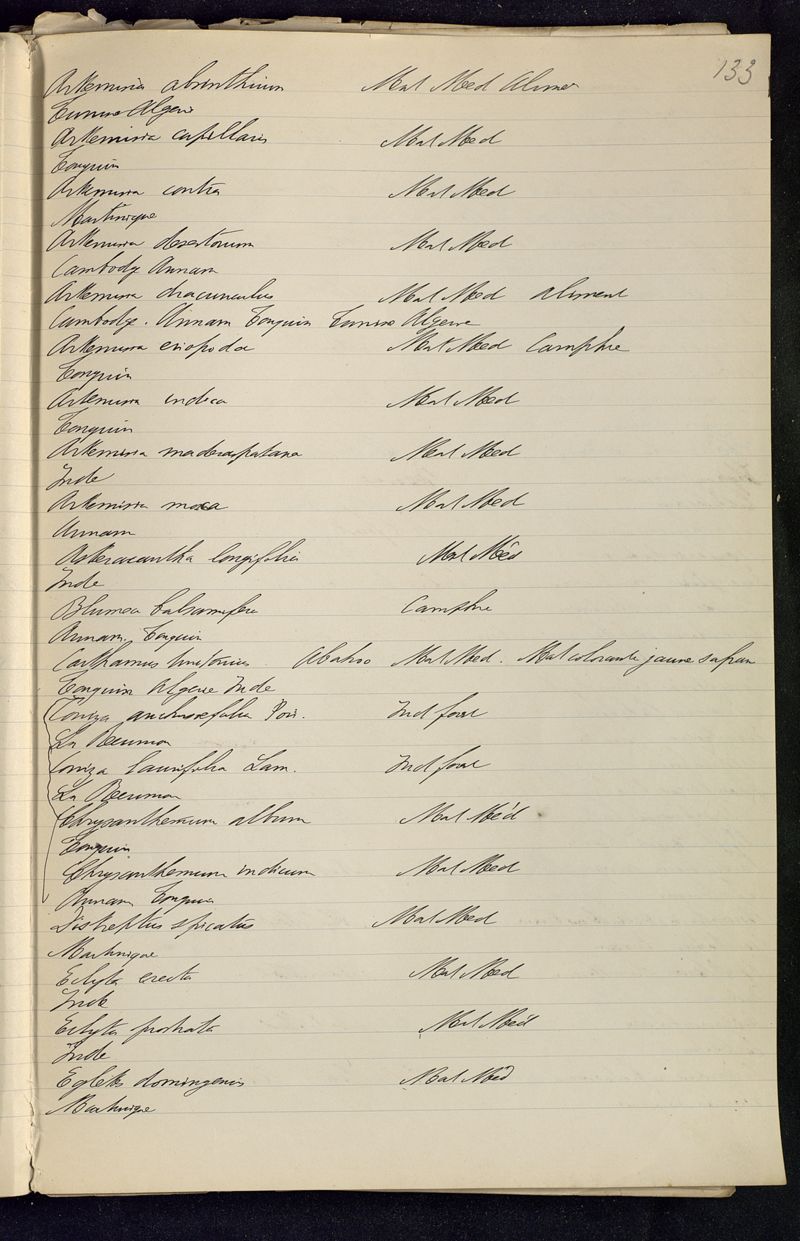 133
Artemisia absinthium Mat Med Alimen
Tunisie Algerie
Artemisia capillaris Mat Med
Tonquin
Artemisia contra Mat Med
Martinique
Artemisia desertorum Mat Med
Cambodge Annam
Artemisia dracunculus Mat Med aliment
Cambodge. Annam Tonquin Tunisie Algerie
Artemisia eriopoda Mat Med Camphre
Tonquin
Artemisia indica Mat Med
Tonquin
Artemisia maderaspatana Mat Med
Inde
Artemisia moxa Mat Med
Annam
Asteracantha longifolia Mat Méd
Inde
Blumea balsamifera Camphre
Annam. Tonquin
Carthamus tinctorius Mat Med. Mat colorante jaune safran
Tonquin Algerie Inde
Coniza Poir. Ind four
La Reunion
Coniza laurifolia Lam. Ind four
La Reunion
Chrysanthemum album Mat Méd
Tonquin
Chrysanthemum indicum Mat Med
Annam Tonquin
Distreptus spicatus Mat Med
Martinique
Eclypta erecta Mat Med
Inde
Eclypta prostrata Mat Méd
Inde
Egletes domingensis Mat Méd
Martinique